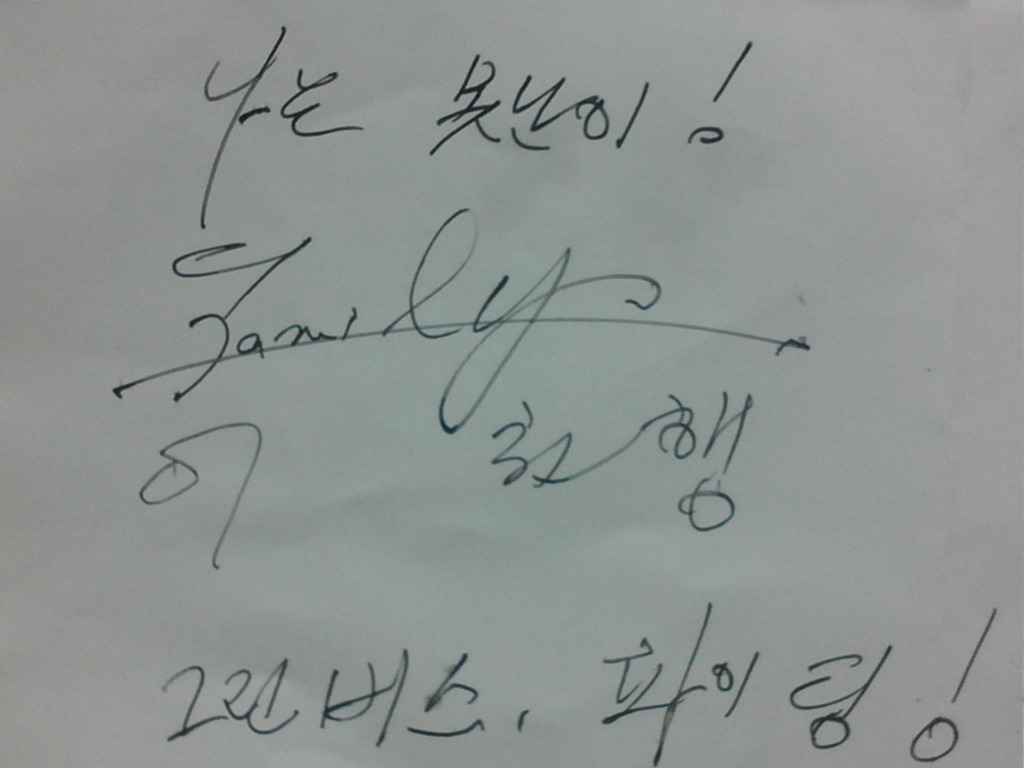 나는 못난이!
Family
이 천행
그린버스, 파이팅!